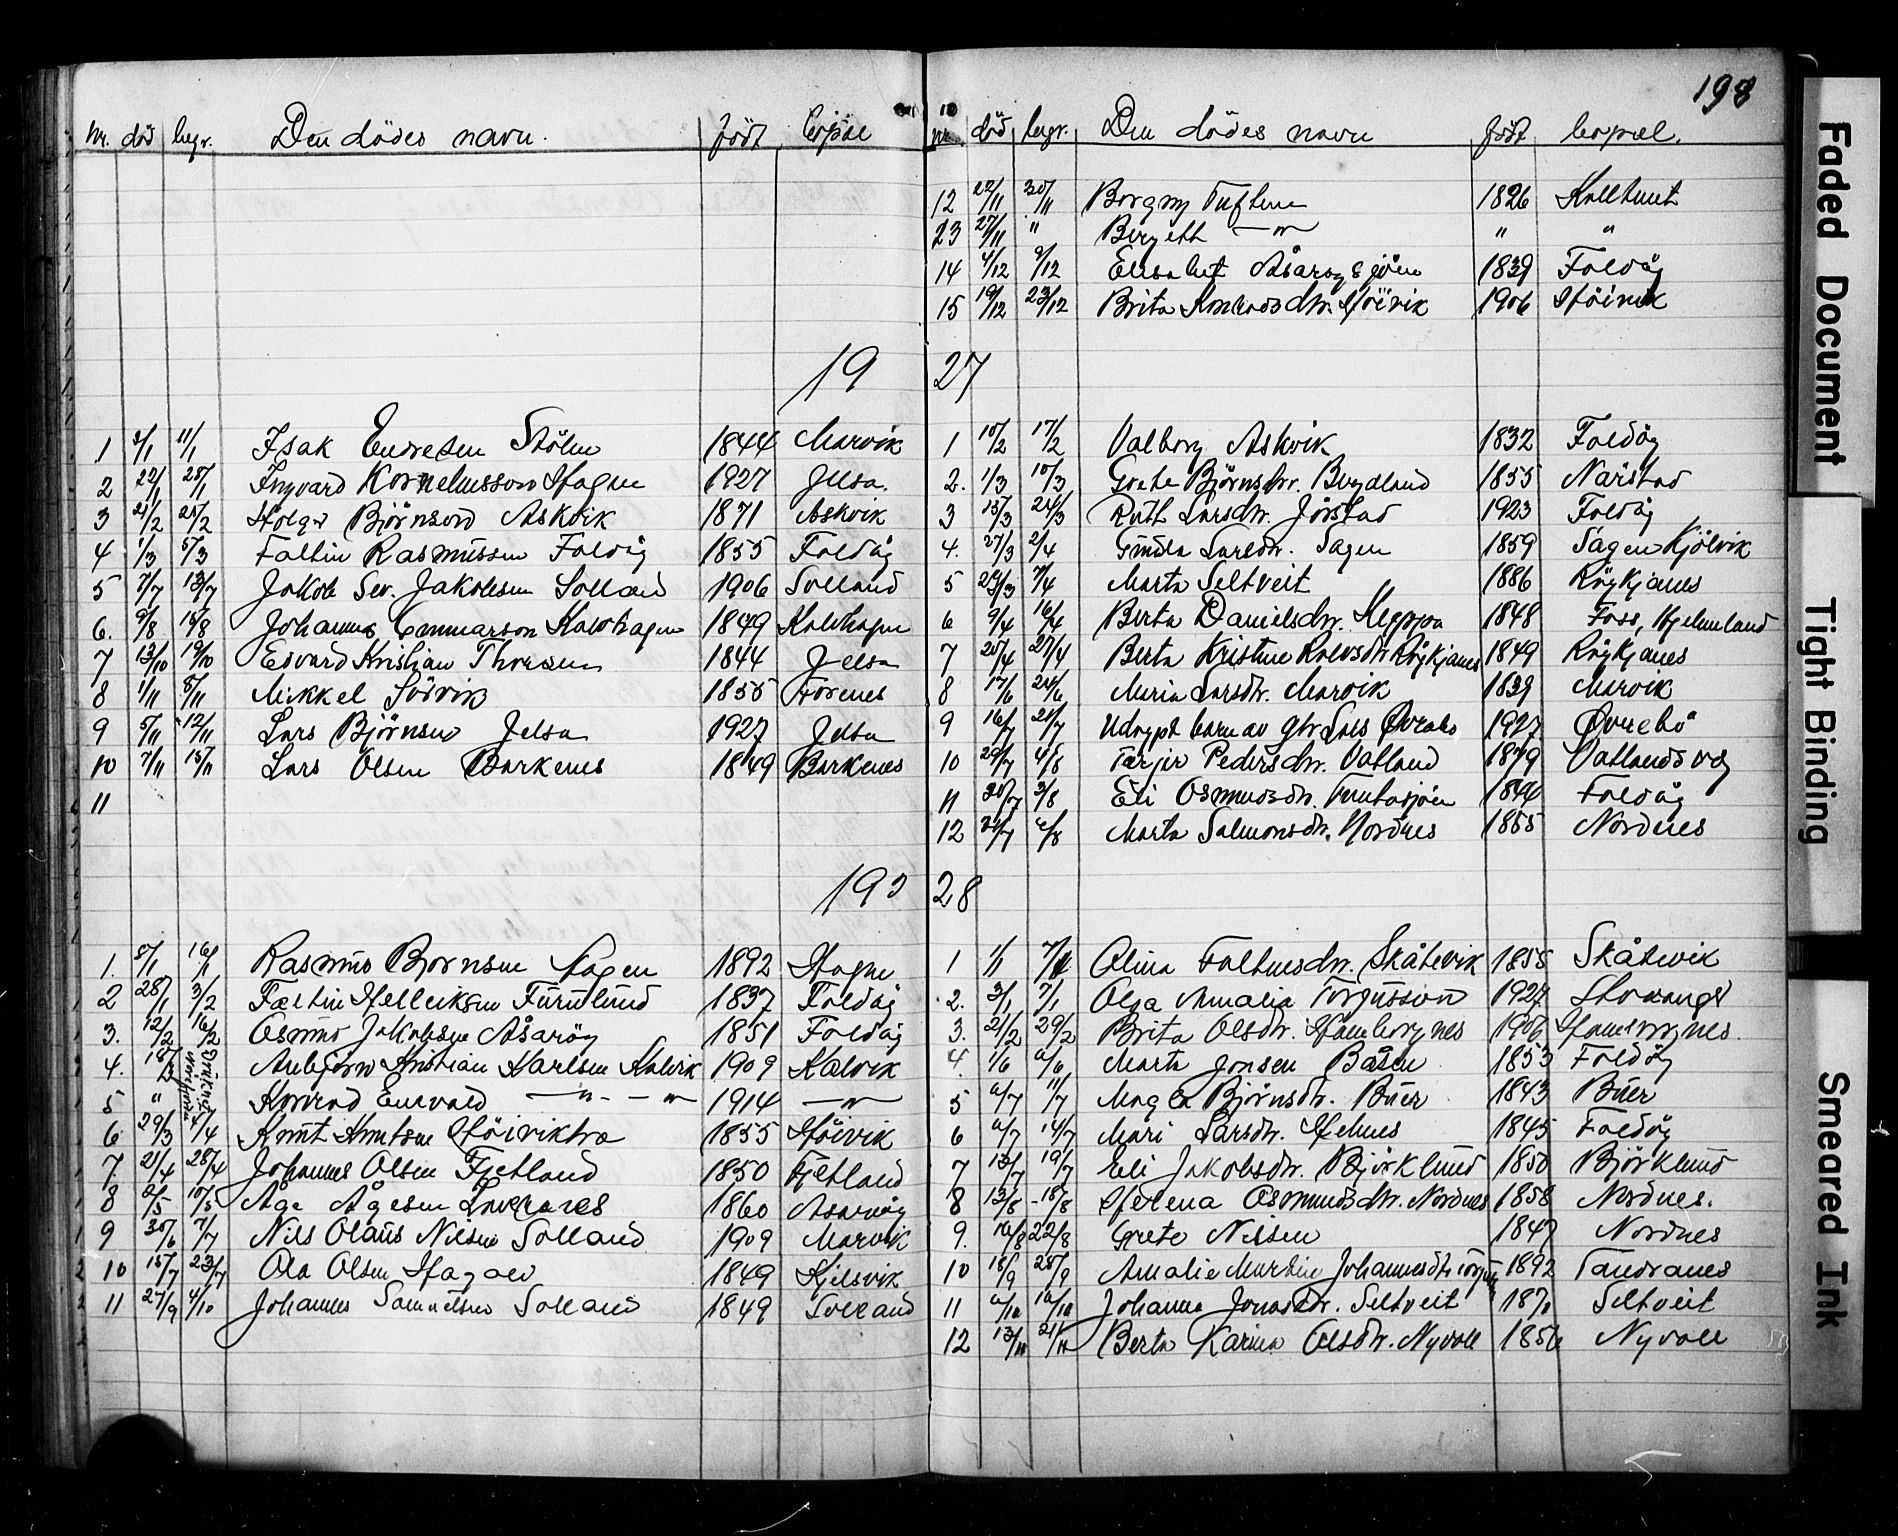 198
Nr. död begr. Den dödes navn. född bopæl
nr. död begr. Den dödes navn född bopæl.
12 22/11 30/11 Borgny Tuftene 1826
23 27/11 " Bergett —"— " "
14 4/12 9/12 Elisabet 1839 Foldøy
15 19/12 23/12 Brita Höivik 1906 Höivik
19 27
1 3/1 11/1 Isak Endresen Stölen 1844 Marvik
2 22/1 28/1 Ingvard Korneliussson Hagen 1927 Jelsa.
3 21/2 28/2 Holger Björnson Askvik 1871 Askvik
4 1/3 5/3 Faltin Rasmussen Foldöy 1855 Foldöy
5 7/7 13/7 Jakob Sev. Jakobsen Solland 1906 Solland
6. 9/8 15/8 Johannes 1849 Kolshagen
7 13/10 19/10 Edvard Kristian Thorsen 1844 Jelsa
8 1/11 8/11 Mikkel Sörvik 1855 Forenes
9 5/11 12/11 Lars Björnsen Jelsa 1927 Jelsa
10 7/11 15/11 Lars Olsen Barkenes 1849 Barkenes
11
1 10/2 17/2 Valborg Askvik 1832 Foldöy
2. 1/3 10/3 Grete Björnsdtr. Bergeland 1855 Narstad
3 15/3 24/3 Rutt Larsdtr. Jörstad 1923 Foldöy
4. 27/3 2/4 Gunla Larsdtr. Sagen 1859 Sagen Kjölvik
5 29/3 7/4 Marta Seltveit 1886 Röykjanes
6 9/4 16/4 Berta Danielsdtr. 1848 Foss, Hjelmeland
7 20/4 27/4 Berta Kristine Röykjanes 1849 Röykjanes
8 17/6 24/6 Maria Larsdtr. Marvik 1839 Marvik
9 16/7 21/7 Udöypt barn av gbr Lars Övrabö 1927 Övrebö
10 29/7 4/8 Pedersdtr. Vatland 1879 Vatlandsvåg
11 28/7 3/8 Eli Osmundsdtr. 1844 Foldöy
12 31/7 6/8 Marta Salmonsdtr. Nordnes 1855 Nordnes
19 28
1. 8/1 16/1 Rasmus Bjornsen Hagen 1892 Hagen
2 28/1 3/2 Faltin Helleiksen Furulund 1837 Foldöy
3. 12/2 16/2 Osmund Jakobsen Åsaröy 1851 Foldöy
4. Anbjörn Kristian Karlsen Kalvik 1909 Kalvik
5 " Konrad Enevald —"— —"— 1914 —"—
6 29/3 4/4 Knut Knutsen 1855 Höivik
7 21/4 28/4 Johannes Olsen Fjetland 1850 Fjetland
8 2/5 10/5 Åge Ågesen 1860 Asaröy
9 30/6 7/7 Nils Olaus Nilsen Solland 1909 Marvik
10 15/7 23/7 Ola Olsen 1849 Kjilsvik
11 27/9 4/10 Johannes Samuelsen Solland 1849 Solland
1 1/1 7/1 Olina Faltinsdtr. Skåtevik 1855 Skåtevik
2. 3/1 7/1 Olga Amalia Torgusson 1927 Stavanger
3. 21/2 29/2 Brita Olsdtr. Hamborgnes 1906
4. 1/6 6/6 Marta Jonsen Båsen 1853 Foldöy
5 6/7 11/7 Björnsdtr. Buer 1843 Buer
6 6/7 14/7 Mari Larsdtr. Helnes 1845 Foldöy
7 13/7 19/7 Eli Jakobsdtr. Björklund 1850 Björklund
8 13/8 18/8 Helena Osmundsdtr. Nordnes 1858 Nordnes.
9. 16/8 22/8 Grete Nilsen 1847 Nordnes
10 18/9 25/9 Amalie Martine Johannesdtr 1892 Tandranes
11 6/10 10/10 Johanna Jonasdtr. Seltveit 1870 Seltveit
12 13/11 21/11 Berta Karina Olsdtr. Nyvoll 1856 Nyvoll
Faded Document
Tight Binding
Smeared Ink